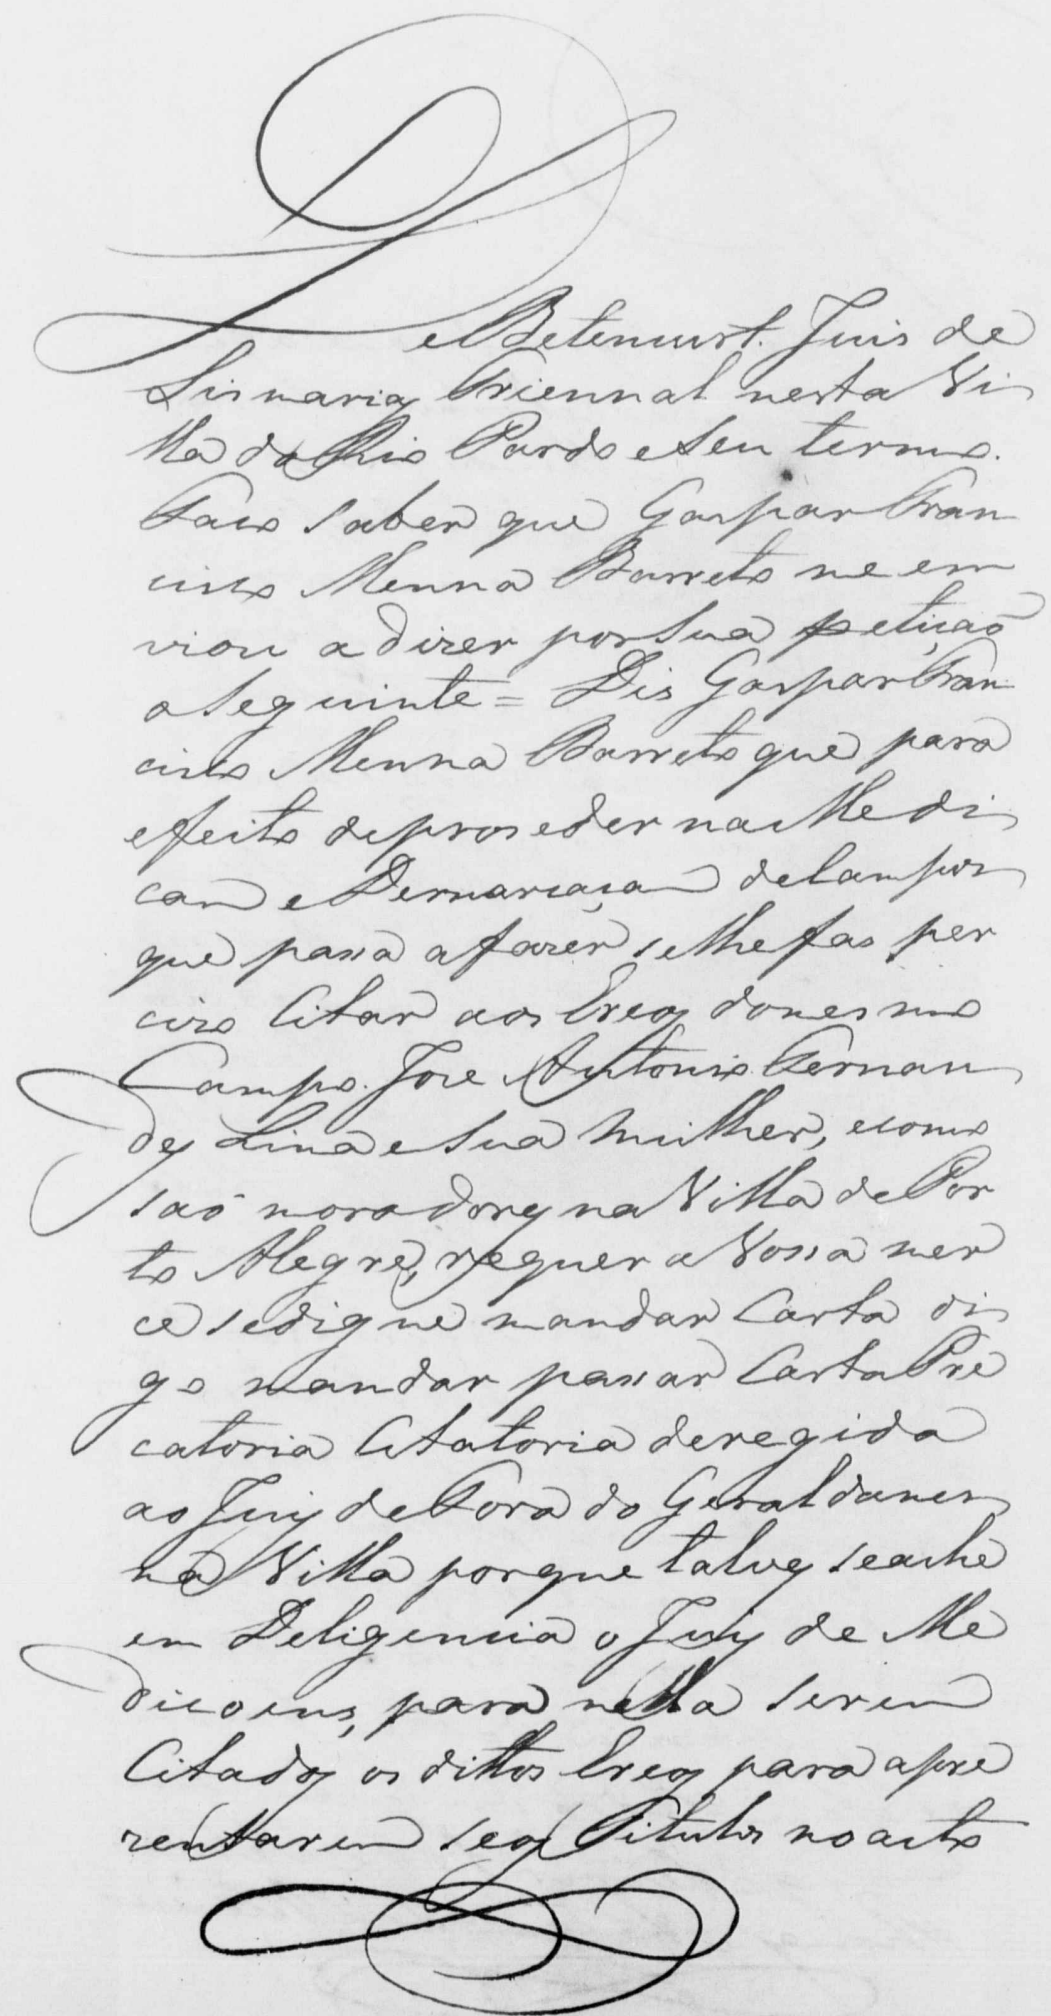 de Betencurt. Juis de
Sismarias Triennal nesta Vi
lla do Rio Pardo e Seu termo.
Faço Saber que Gaspar Fran
cisco Menna Barreto me em
viou a dizer por Sua petiçaõ
o Seguinte = Dis Gaspar Fran
cisco Menna Barreto que para
efeito de proseder na Medi
cam e Demarcaçam de Campos
que passa a fazer, se lhe fas per
cizo Citar aos Ereos do mesmo
Campo. Joze Antonio Fernan
des Lima e Sua mulher, e como
saõ moradores na Villa de Por
to Alegre, requer a Vossa mer
ce se digne mandar Carta di
go mandar passar Carta Pre
catoria Citatoria deregida
ao Juis de Fora do Geral da mes
ma Villa porque talves se ache
em Deligencia o Juis de Me
dicoens, para nella serem
Citados os dittos Ereos para apre
zentarem seos Titulos no acto